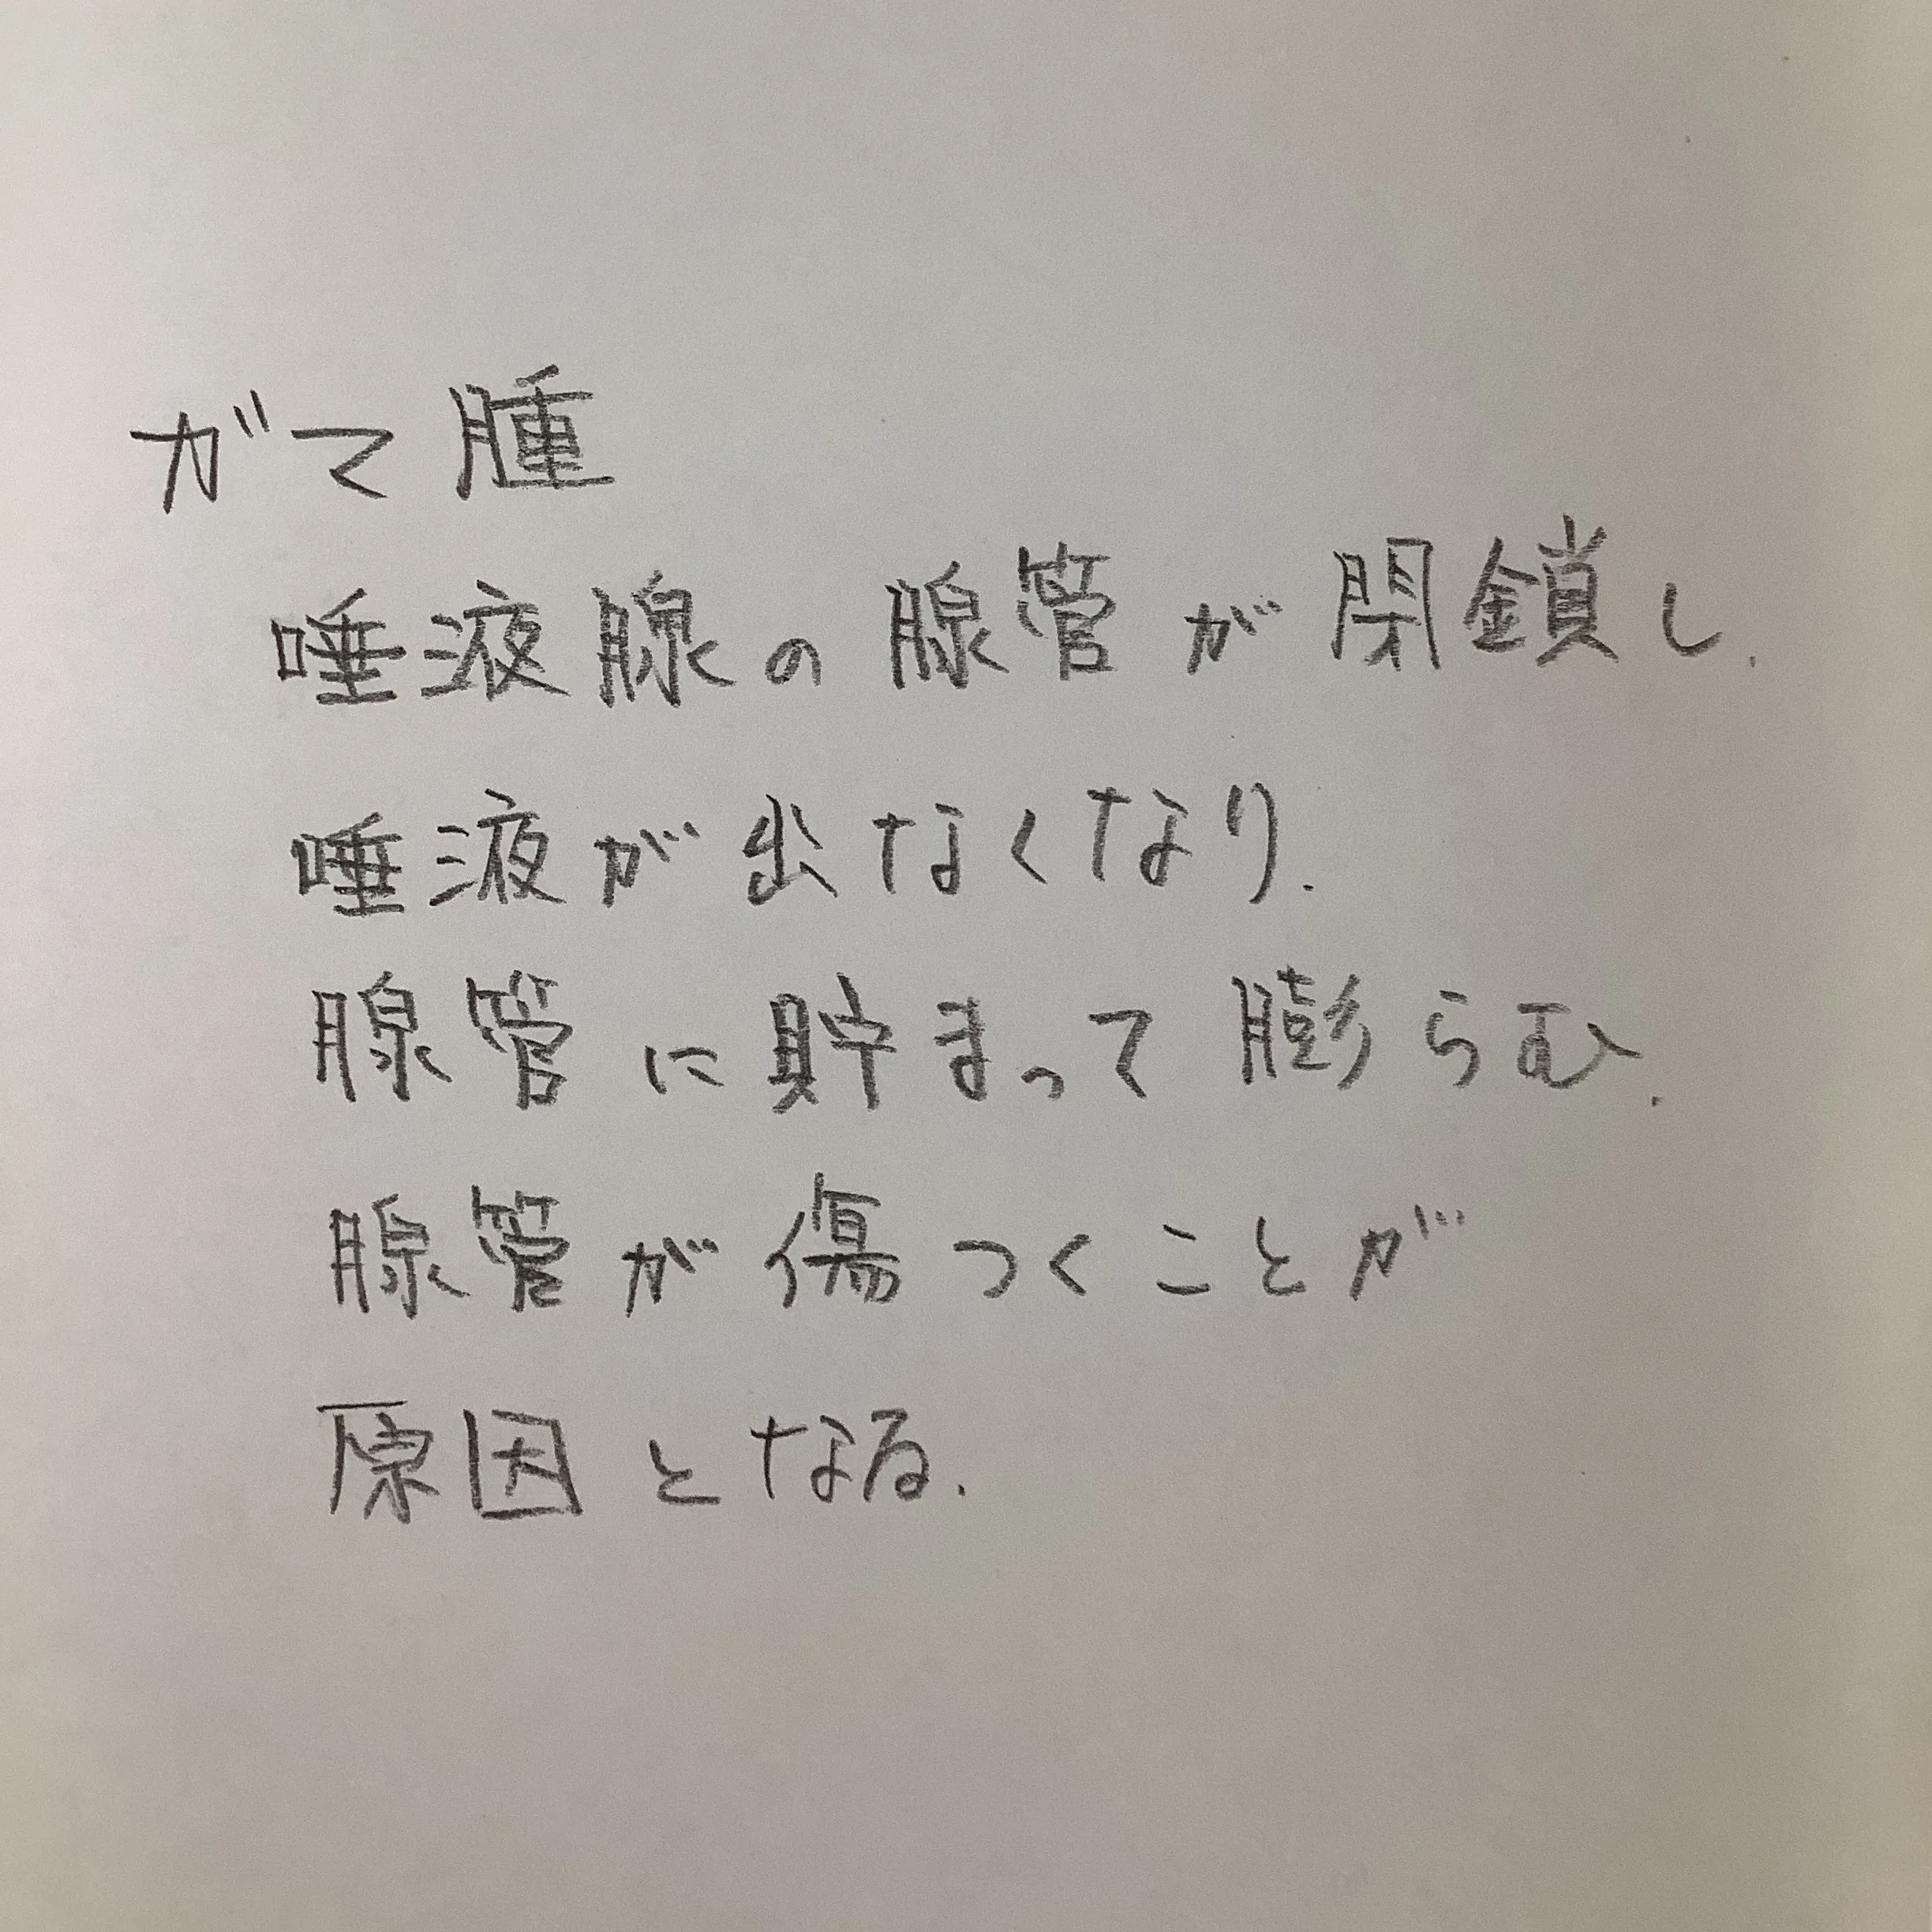 ガマ腫
唾液腺の腺管が閉鎖し.
唾液が出なくなり.
腺管に貯まって膨らむ.
腺管が傷つくことが
原因となる.